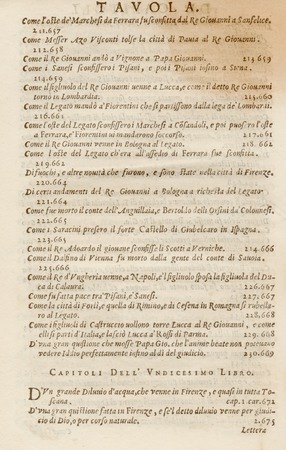 TAVOLA.
Come l'oste de' Marchesi da Ferrara fu sconfitta dal Re Giouanni a Sanfelice.
211.657
Come Messer Azo Visconti tolse la città di Pauia al Re Giouanni.
212.658
Come il Re Giouanni andò a Vignone a Papa Giouanni. 213.659
Come i Sanesi sconfissero i Pisani, e poi i Pisani insino a Siena.
214.659
Come il figliuolo del Re Giouanni venne a Lucca, e come il detto Re Giouanni
torno in Lombardia. 215.660
Come il Legato mandò a' Fiorentini che si partissono dalla lega de' Lombardi.
216.661
Come l'oste del Legato sconfissero i Marchesi a Cōsandoli, e poi puosero l'oste
a Ferrara, e' Fiorentini vi mandarono soccorso. 217.061
Come il Re Giouanni venne in Bologna al Legato. 218.662
Come l'oste del Legato ch'era all'assedio di Ferrara fue sconfitta.
219.662
Di fuochi, e altre nouità che furono, e sono state nella città di Firenze.
220.664
Di certi andamenti del Re Giouanni a Bologna a richesta del Legato.
221.664
Come fue morto il conte dell'Anguillaia, e Bertoldo delli Orsini da Colonnesi.
222.665
Come i Saracini presero il forte Castello di Giubelcaro in Ispagna.
223.665
Come il Re Adoardo il giouane sconfisse li Scotti a Verniche. 224.666
Come il Dalfino di Vienna fu morto dalla gente del conte di Sauoia.
225.666
Come il Re d'Vngheria venne a Napoli, e'l figliuolo sposa la figliuola del Du-
ca di Calaura. 226.667
Come fu fatta pace tra' Pisani, e Sanesi. 227.667
Come la città di Forlì, e quella di Rimino, e di Cesena in Romagna si rubella-
ro al Legato. 228.668
Come i figliuoli di Castruccio uollono torre Lucca al Re Giouanni, e come
elli si partì d'Italia, e lasciò Lucca a' Rossi di Parma. 229.668
D'vna gran quistione che mosse Papa Gio. che l'anime beate non poteuano
vedere Iddio perfettamente insino al dì del giudicio. 230.669
CAPITOLI DELL' VNDICESIMO LIBRO.
D'Vn grande Diluuio d'acqua, che venne in Firenze, e quasi in tutta To-
scana. cap. 1 car. 672
D'vna gran quistione fatta in Firenze, e se'l detto diluuio venne per giudi-
cio di Dio, o per corso naturale. 2.675
Lettera